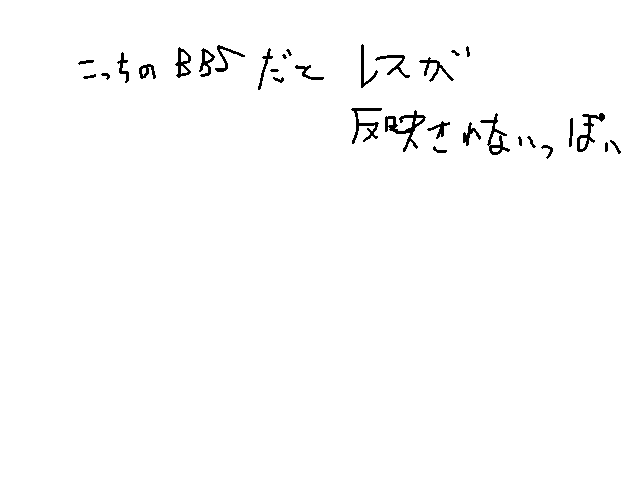 こっちのBBSだと レスが
反映されないっぽい